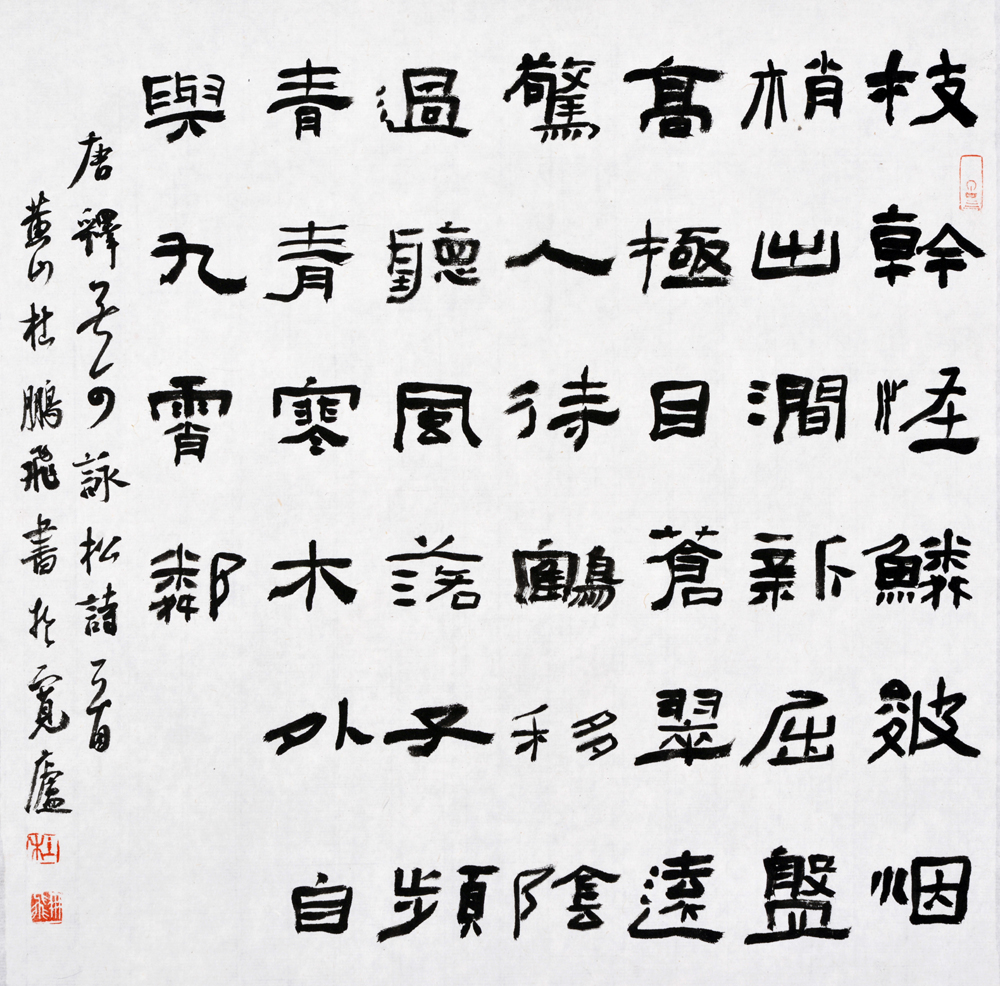 枝幹怪鱗皴烟
梢出澗新屈盤
髙極目蒼翠遠
驚人待鶴移陰
過聽風落子頻
青青寒木外自
與九霄鄰
唐釋無可詠松詩一首
黄山杜鵬飛書於寬廬